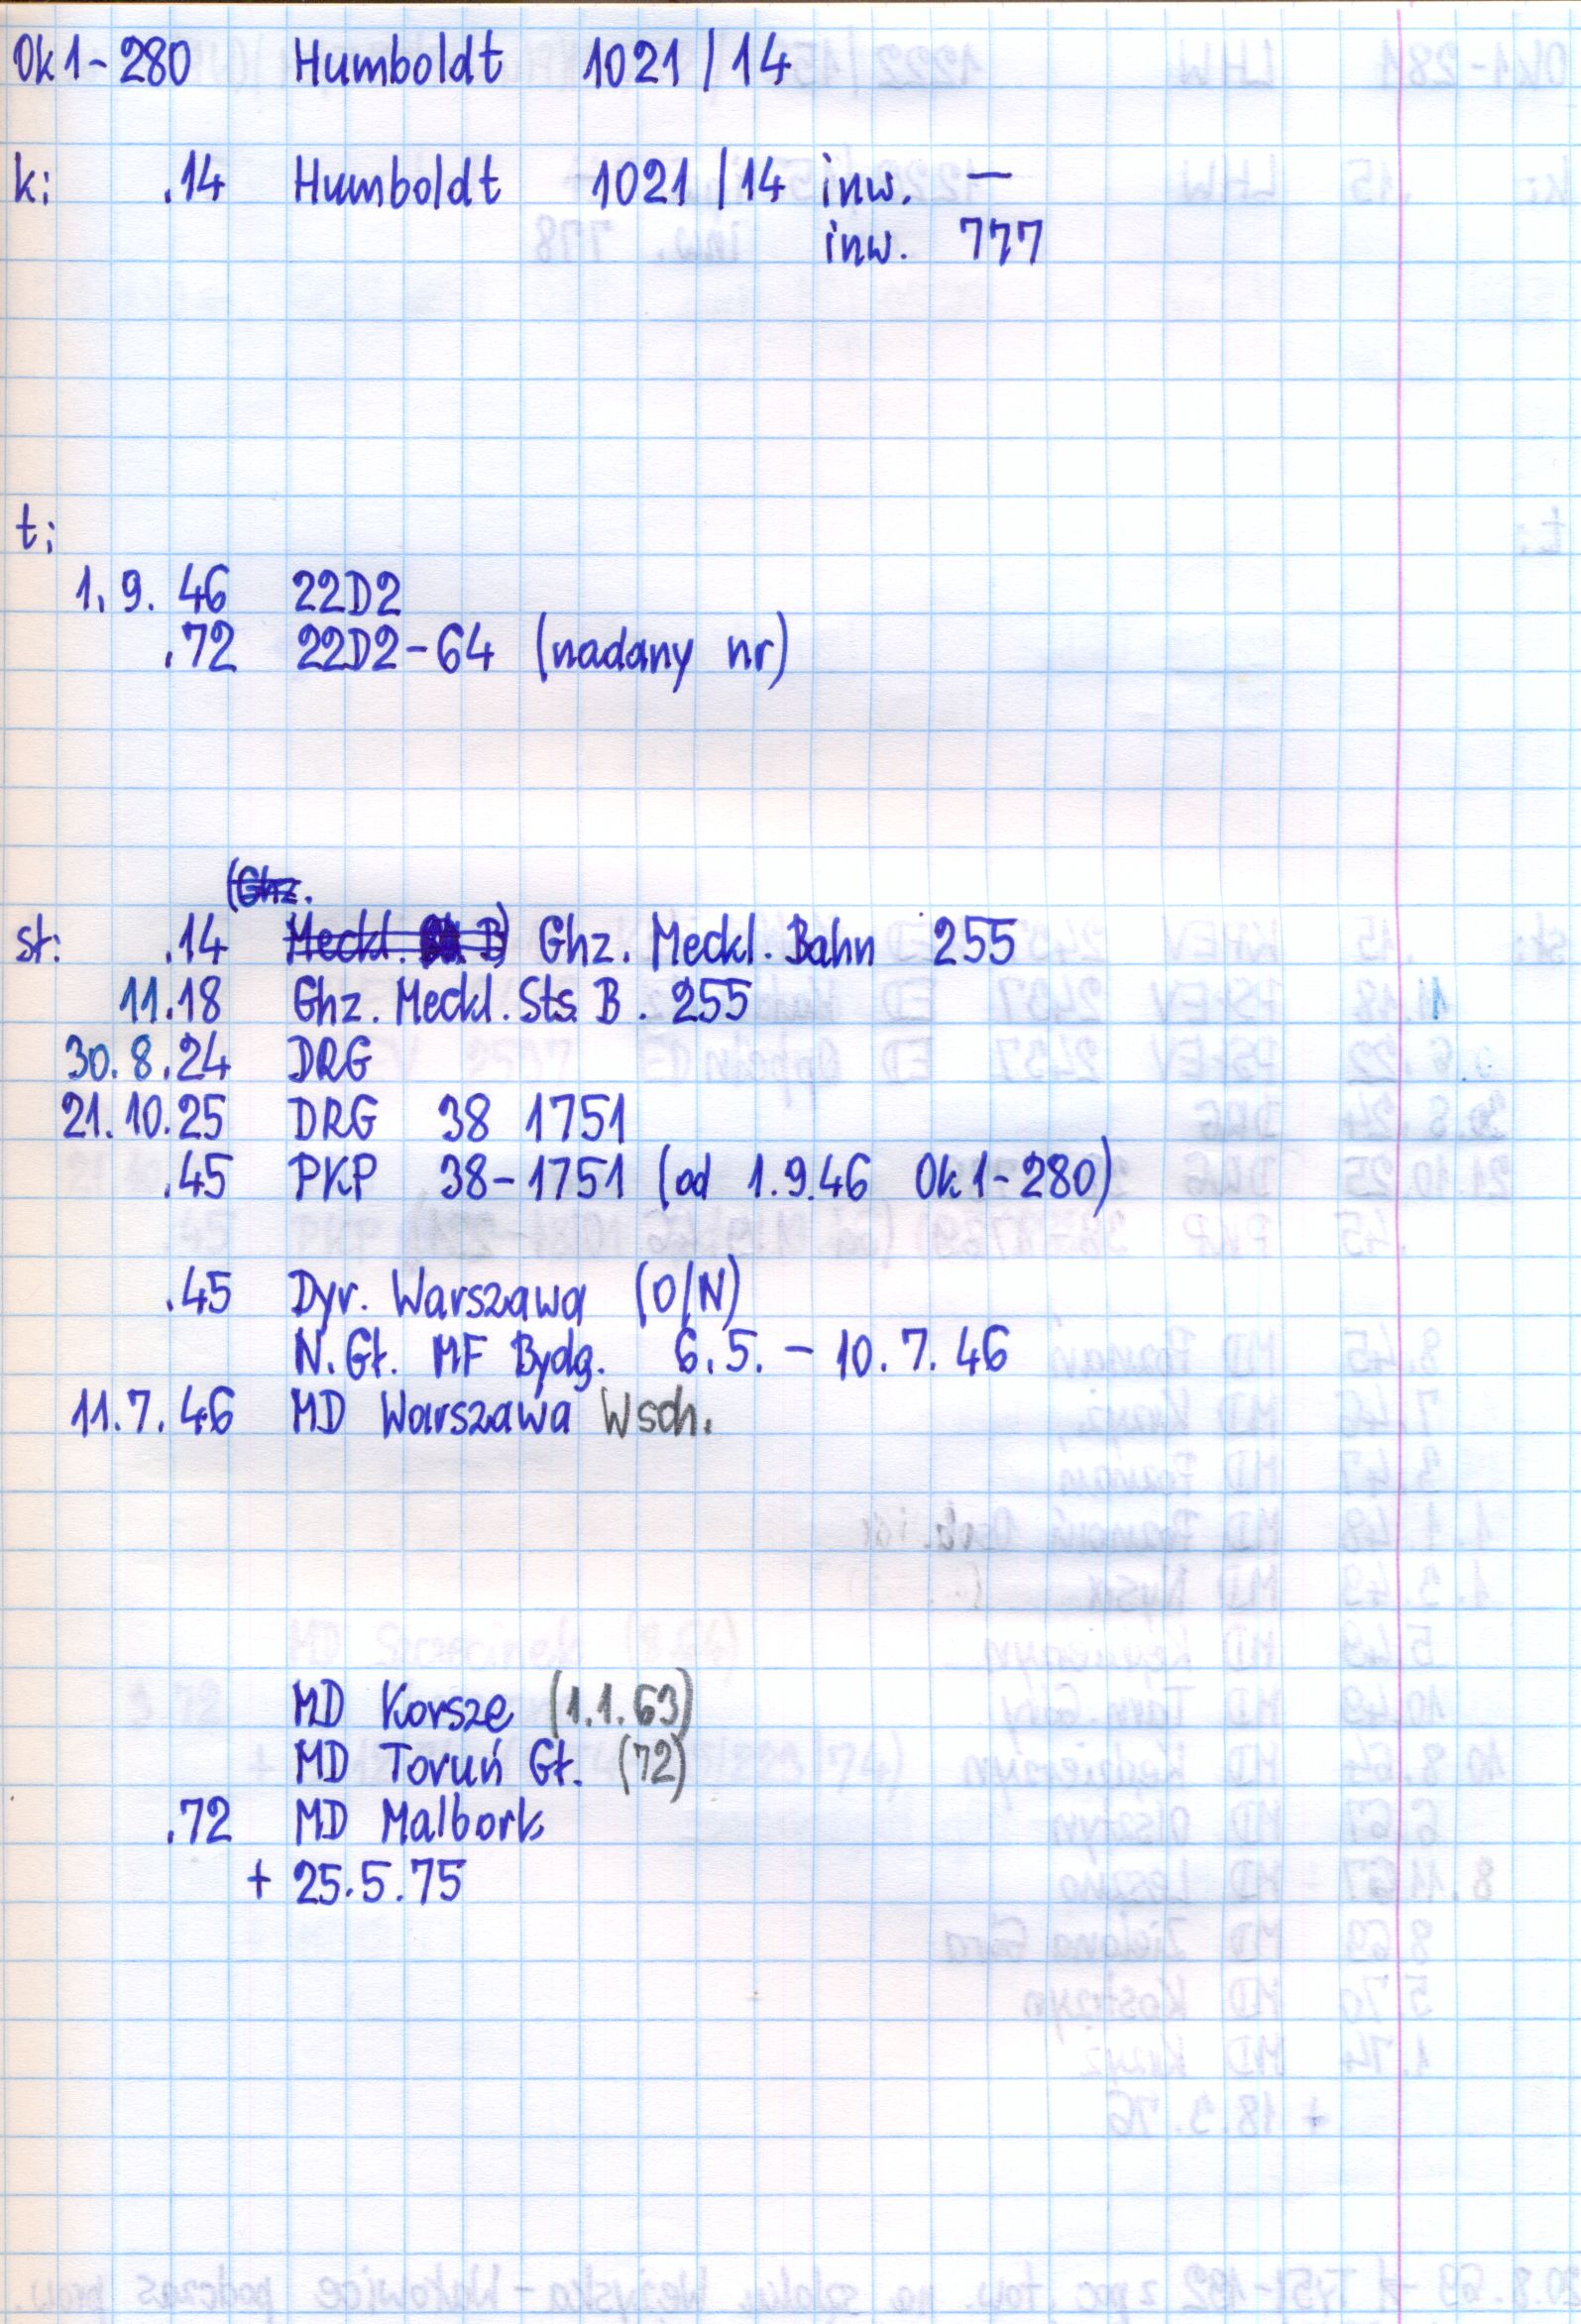 Ok1-280 Humboldt 1021/14
k: .14 Humboldt 1021/14 inw. —
inw. 777
t:
1.9.46 22D2
.72 22D2-64 (nadany nr)
(Ghz.
st: .14 Meckl. B) Ghz. Meckl. Bahn 255
11.18 Ghz. Meckl. Sts. B. 255
30.8.24 DRG
21.10.25 DRG 38 1751
.45 PKP 38-1751 (od 1.9.46 Ok1-280)
.45 Dyr. Warszawa (O/N)
N.Gł. MF Bydg. 6.5. - 10.7.46
11.7.46 MD Warszawa Wsch.
MD Korsze (1.1.63)
MD Toruń Gł. (72)
.72 MD Malbork
+ 25.5.75